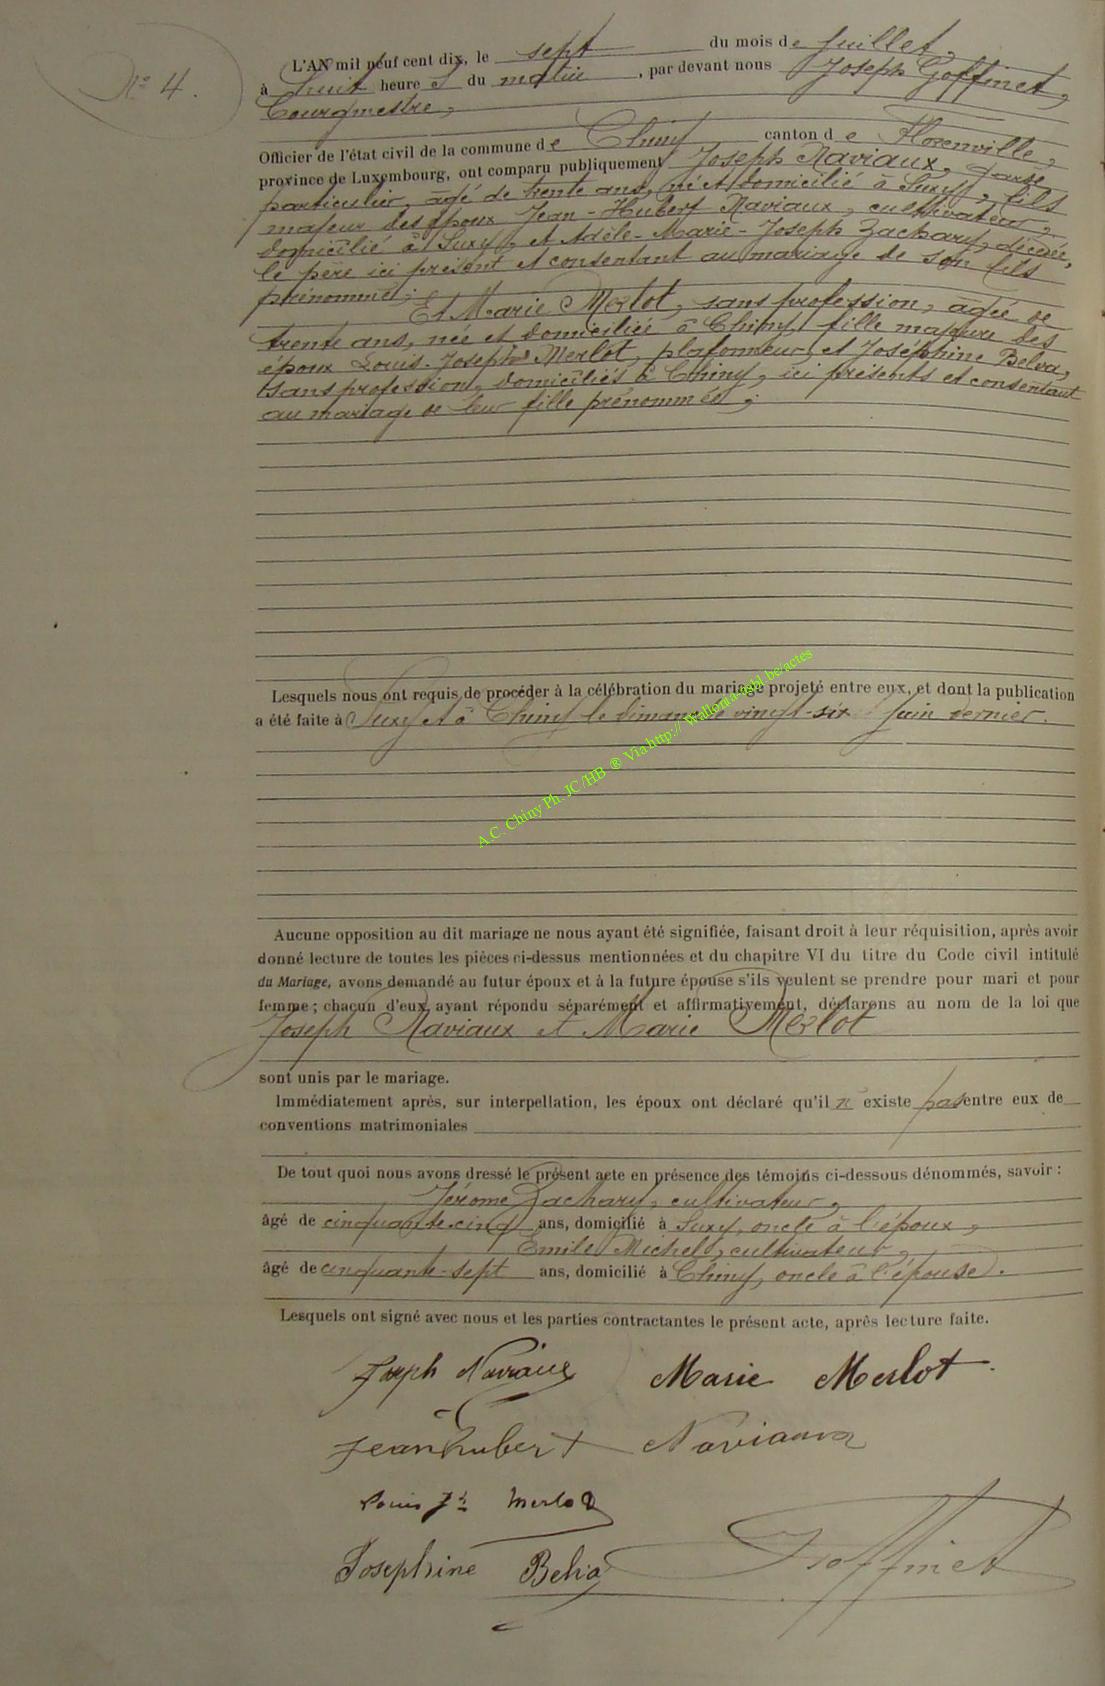 N° 4.
L'AN mil neuf cent dix, le sept du mois de juillet,
à huit heures du matin, par devant nous Joseph Goffinet,
bourgmestre,
Officier de l'état civil de la commune de Chiny canton de Florenville,
province de Luxembourg, ont comparu publiquement Joseph Naviaux, garde
particulier, âgé de trente ans, né et domicilié à Suxy, fils
majeur des époux Jean-Hubert Naviaux, cultivateur,
domicilié à Suxy, et Adèle-Marie-Joseph Zachary, décédée,
le père ici présent et consentant au mariage de son fils
prénommé;
Et Marie Merlot, sans profession, agée de
trente ans, née et domiciliée à Chiny, fille majeure des
époux Louis-Joseph Merlot, plafonneur, et Joséphine Belva,
sans profession, domiciliés à Chiny, ici présents et consentant
au mariage de leur fille prénommée;
Lesquels nous ont requis de procéder à la célébration du mariage projeté entre eux, et dont la publication
a été faite à Suxy et à Chiny le dimanche vingt-six juin dernier.
A.C. Chiny Ph. JC/HB ® Via http:// Wallonia-asbl.be/actes
Aucune opposition au dit mariage ne nous ayant été signifiée, faisant droit à leur réquisition, après avoir
donné lecture de toutes les pièces ci-dessus mentionnées et du chapitre VI du titre du Code civil intitulé
du Mariage, avons demandé au futur époux et à la future épouse s'ils veulent se prendre pour mari et pour
femme; chacun d'eux ayant répondu séparément et affirmativement, déclarons au nom de la loi que
Joseph Naviaux et Marie Merlot
sont unis par le mariage.
Immédiatement après, sur interpellation, les époux ont déclaré qu'il n'existe pas entre eux de
conventions matrimoniales
De tout quoi nous avons dressé le présent acte en présence des témoins ci-dessous dénommés, savoir :
Jérome Zachary, cultivateur,
âgé de cinquante-cinq ans, domicilié à Suxy, oncle à l'époux,
Emile Michels, cultivateur,
âgé de cinquante-sept ans, domicilié à Chiny, oncle à l'épouse.
Lesquels ont signé avec nous et les parties contractantes le présent acte, après lecture faite.
Joseph Naviaux Marie Merlot
Jean hubert Naviaux
Louis Jh Merlot
Josephine Belva Goffinet